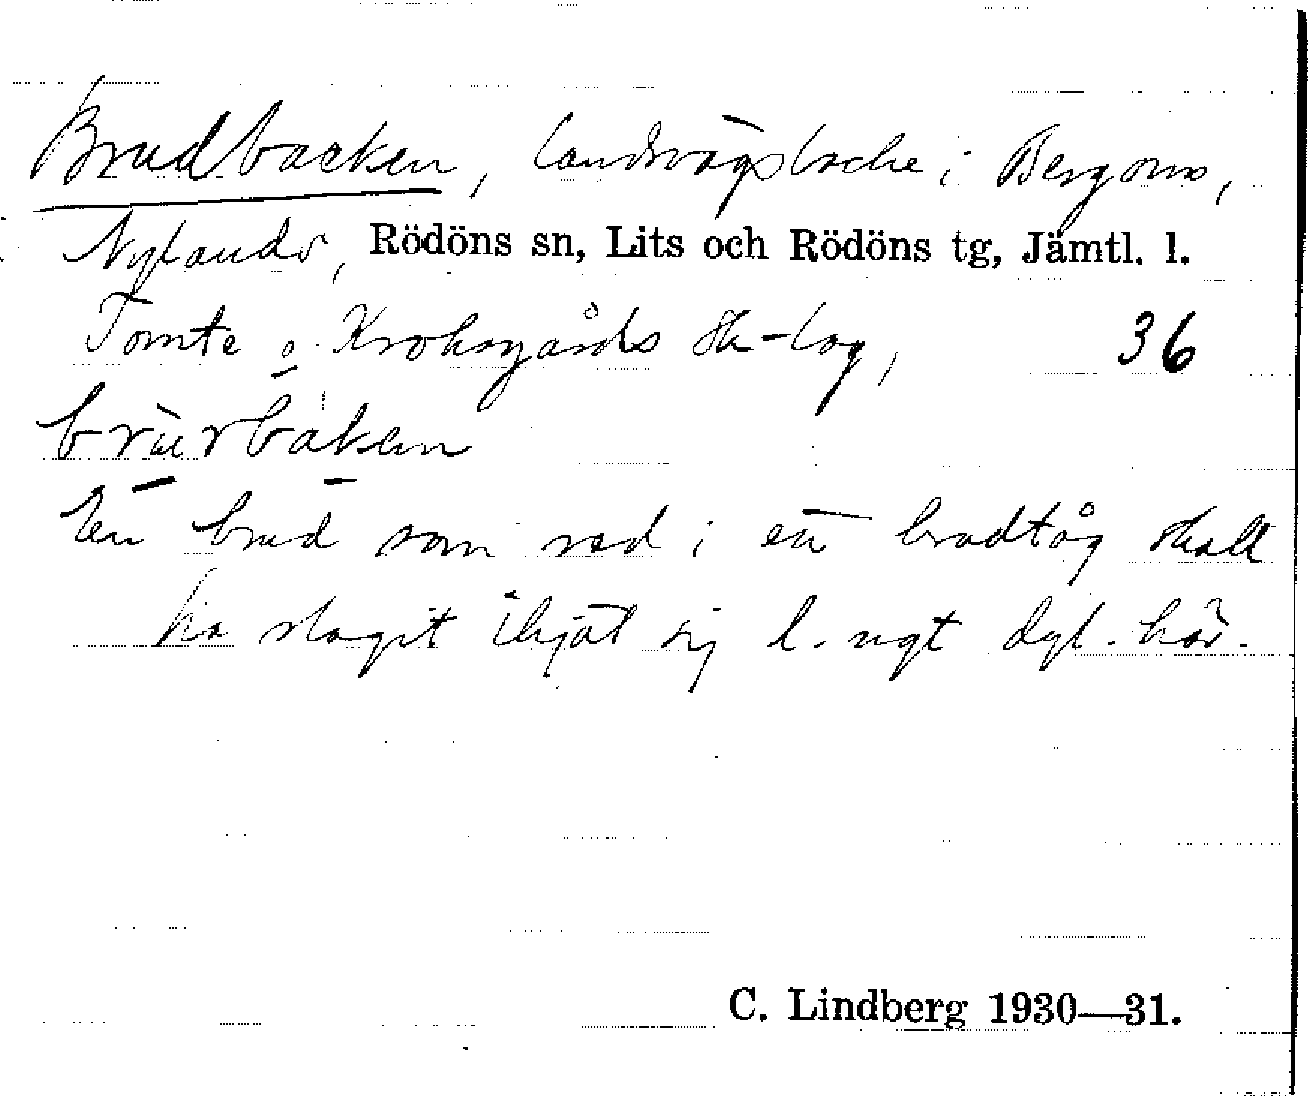 Brudbacken, landsvägsbacke i Bergoms,
Nylands, Rödöns sn, Lits och Rödöns tg, Jämtl. l.
Tomte o. Kroksgårds sk-lag, 36
brùrbàken
En brud som red i ett brudtåg skall
ha slagit ihjäl sig l. ngt dyl. här.
C. Lindberg 1930—31.